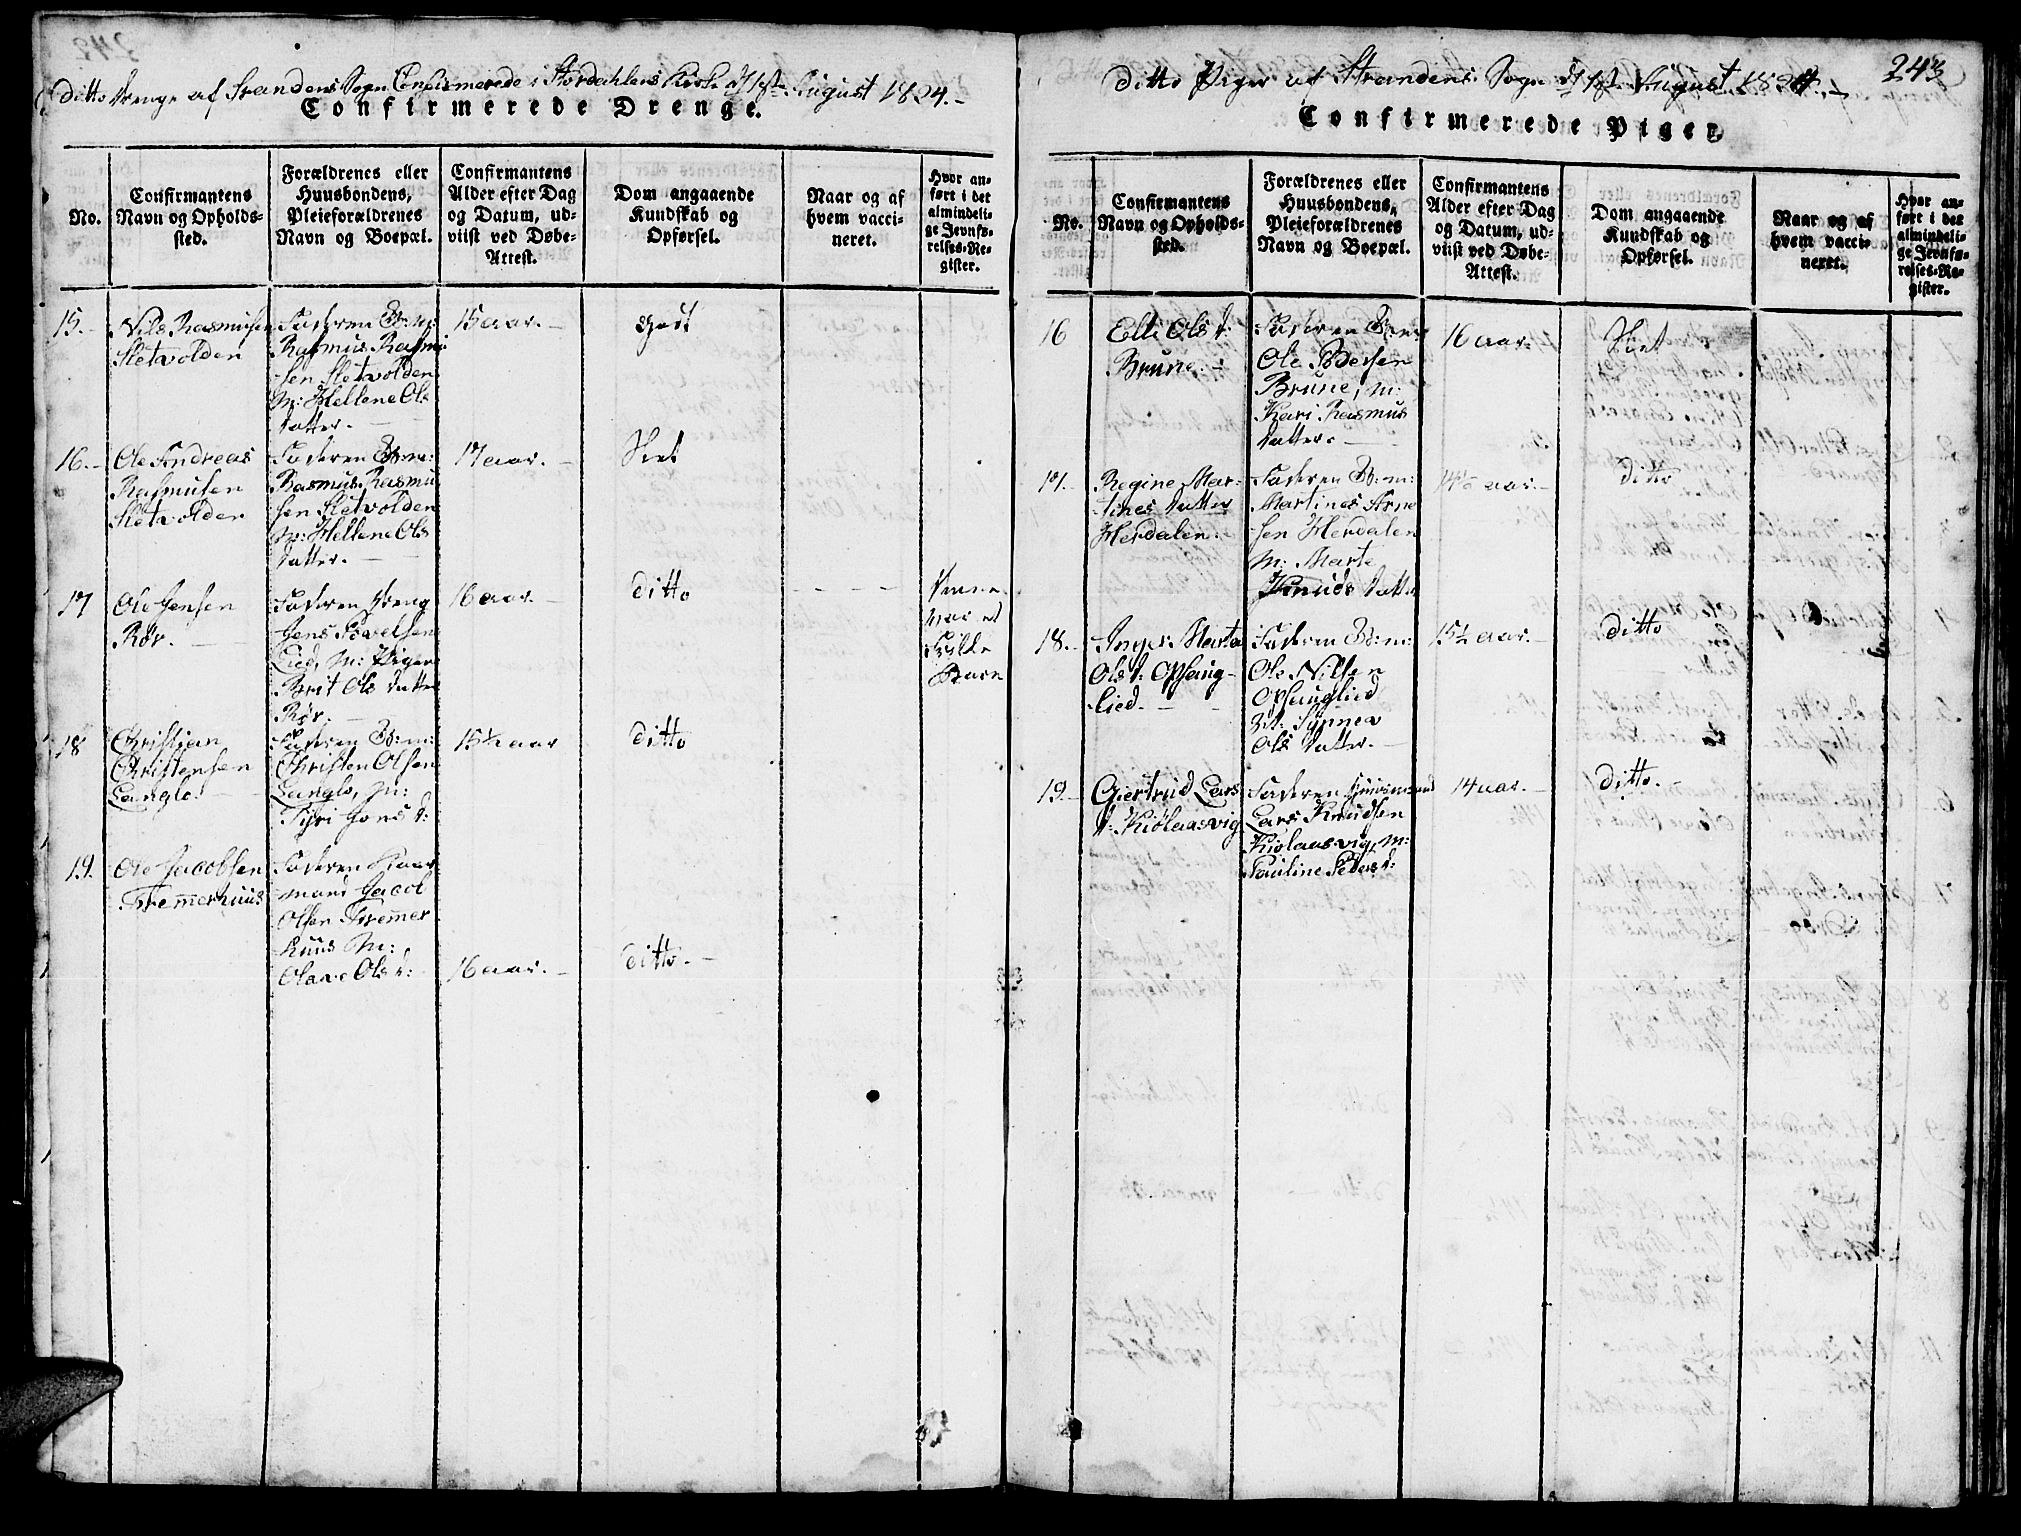 Ditto Drenge af Strandens Sogn Confirmerede i Stordahlens Kirke d 1ste August 1824.-
Confirmerede Drenge.
No.
Confirmantens
Navn og Opholds-
sted.
Forældrenes eller
Huusbondens,
Pleieforældrenes
Navn og Boepæl.
Confirmantens
Alder efter Dag
og Datum, ud-
viist ved Døbe-
Attest.
Dom angaaende
Kundskab og
Opførsel.
Naar og af
hvem vacci-
neret.
Hvor an-
ført i det
almindeli-
ge Jevnfø-
relses-Re-
gister.
15.- Nils Rasmusen
Sletvolden
Faderen B:m:
Rasmus Rasmu
sen Sletvolden
M: Hellene Ols
datter.-
15 aar.-
Godt
16.- Ole Andreas
Rasmusen
Sletvolden
Faderen B:m:
Rasmus Rasmu
sen Sletvolden
M: Hellene Ols
datter.-
17 aar.-
Slet
17 Ole Jensen
Rør.-
Faderen Dreng
Jens Povelsen
Lied, M: Pigen
Brit Ols datter
Rør.-
16 aar.-
ditto
Denne
var et
Hilde
Barn
18 Christian
Christensen
Langlo.-
Faderen B:m:
Christen Olsen
Langlo, M:
Tyri Jons d:
15½ aar
ditto
19. Ole Jacobsen
Fremerhuus
Faderen Kaar
mand Jacob
Olsen Fremer
huus M:
Olave Ols d:
16 aar.-
ditto.-
243
Ditto Piger af Strandens Sogn d 1ste August 1824.-
Confirmerede Piger.
No.
Confirmantens
Navn og Opholds-
sted.
Forældrenes eller
Huusbondens,
Pleieforældrenes
Navn og Boepæl.
Confirmantens
Alder efter Dag
og Datum, ud-
viist ved Døbe-
Attest.
Dom angaaende
Kundskab og
Opførsel.
Naar og af
hvem vacci-
neret.
Hvor an-
ført i det
almindeli-
ge Jevnfø-
relses-Re-
gister.
16 Elli Ols d:
Brune.-
Faderen B:m:
Ole Pedersen
Brune, M:
Kari Rasmus
datter.-
16 aar.
Slet
17.- Regine Mar-
tines datter
Herdalen.
Faderen B:m:
Martines Arne
sen Herdalen
M: Marte
Knuds datter
aar.-
ditto
18.- Inger Marta
Ols d: Opshaug-
lied.-
Faderen B:m:
Ole Nilsen
Opshauglied
M: Synneva
Ols datter.-
15½ aar.-
ditto
19.- Giertrud Lars
d: Kiölaasvig
Faderen Huusmand
Lars Knudsen
Kiolaasvig, M:
Pauline Peders d:
14 aar.-
ditto.-